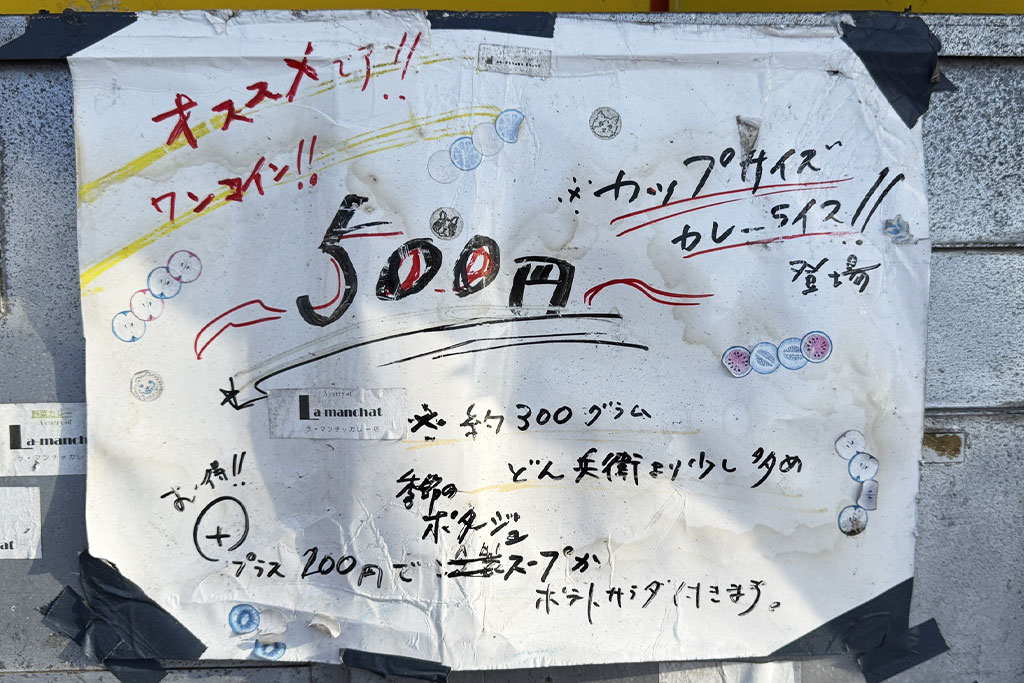 オススメです!!
ワンコイン!!
500円
※カップサイズ
カレーライス!!
登場
A curry of
La-manchat
ラ・マンチャカレー店
※約300グラム
どん兵衛より少し多め
お得!!
+
プラス200円で
季節の
ポタージュ
スープか
ポテトサラダ付きます。
野菜カレー
A curry of
La-manch
ラ・マンチャカレ
at
a-manchat